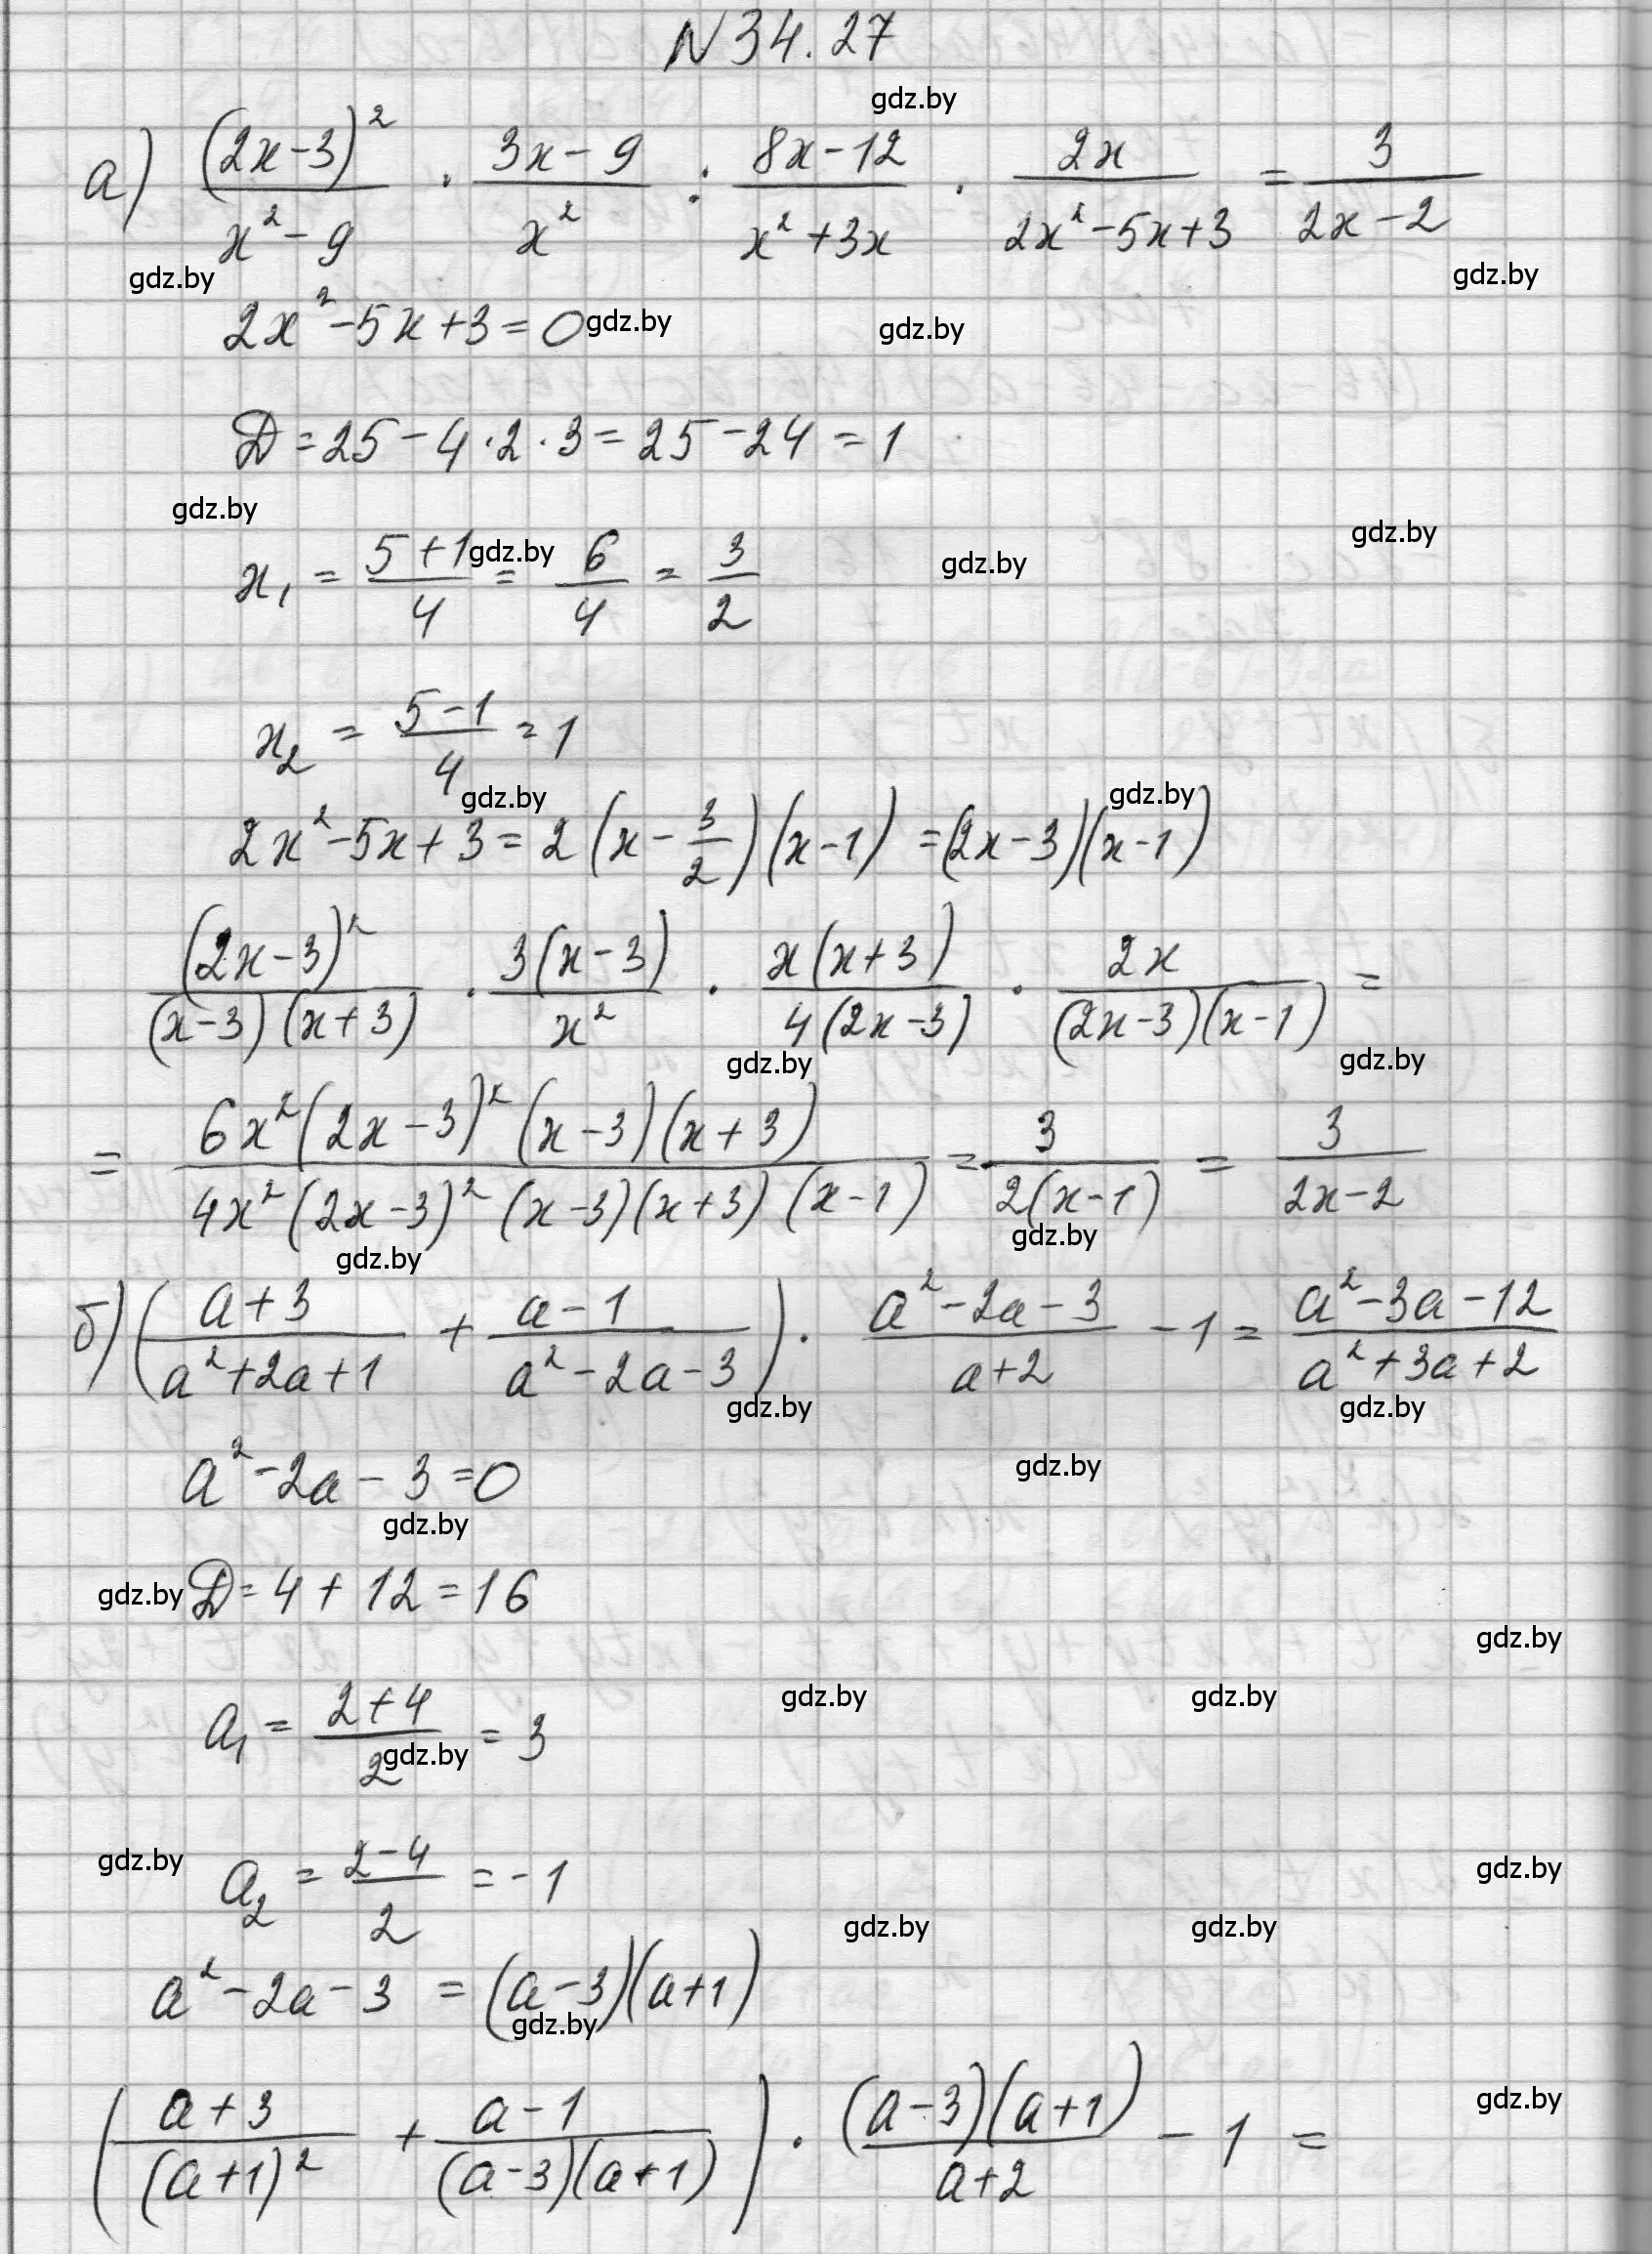 N 34.27
gdz.by
а) (2x-3)²/(x²-9) · (3x-9)/x² : (8x-12)/(x²+3x) · 2x/(2x²-5x+3) = 3/(2x-2)
gdz.by gdz.by
2x²-5x+3=0 gdz.by gdz.by
D=25-4·2·3=25-24=1
gdz.by gdz.by
x₁ = (5+1)/4 gdz.by = 6/4 = 3/2 gdz.by
x₂ = (5-1)/4 = 1
gdz.by gdz.by
2x²-5x+3=2(x-3/2)(x-1)=(2x-3)(x-1)
(2x-3)²/((x-3)(x+3)) · 3(x-3)/x² · x(x+3)/(4(2x-3)) · 2x/((2x-3)(x-1)) =
gdz.by gdz.by
= 6x²(2x-3)²(x-3)(x+3)/(4x²(2x-3)²(x-3)(x+3)(x-1)) = 3/(2(x-1)) = 3/(2x-2)
gdz.by gdz.by
б) ((a+3)/(a²+2a+1) + (a-1)/(a²-2a-3)) · (a²-2a-3)/(a+2) - 1 = (a²-3a-12)/(a²+3a+2)
gdz.by gdz.by
a²-2a-3=0 gdz.by
gdz.by
gdz.by D=4+12=16
gdz.by
gdz.by gdz.by
a₁ = (2+4)/2 = 3
gdz.by
gdz.by gdz.by
a₂ = (2-4)/2 = -1
gdz.by gdz.by
a²-2a-3 = (a-3)(a+1)
gdz.by
gdz.by
((a+3)/(a+1)² + (a-1)/((a-3)(a+1))) · (a-3)(a+1)/(a+2) - 1 =